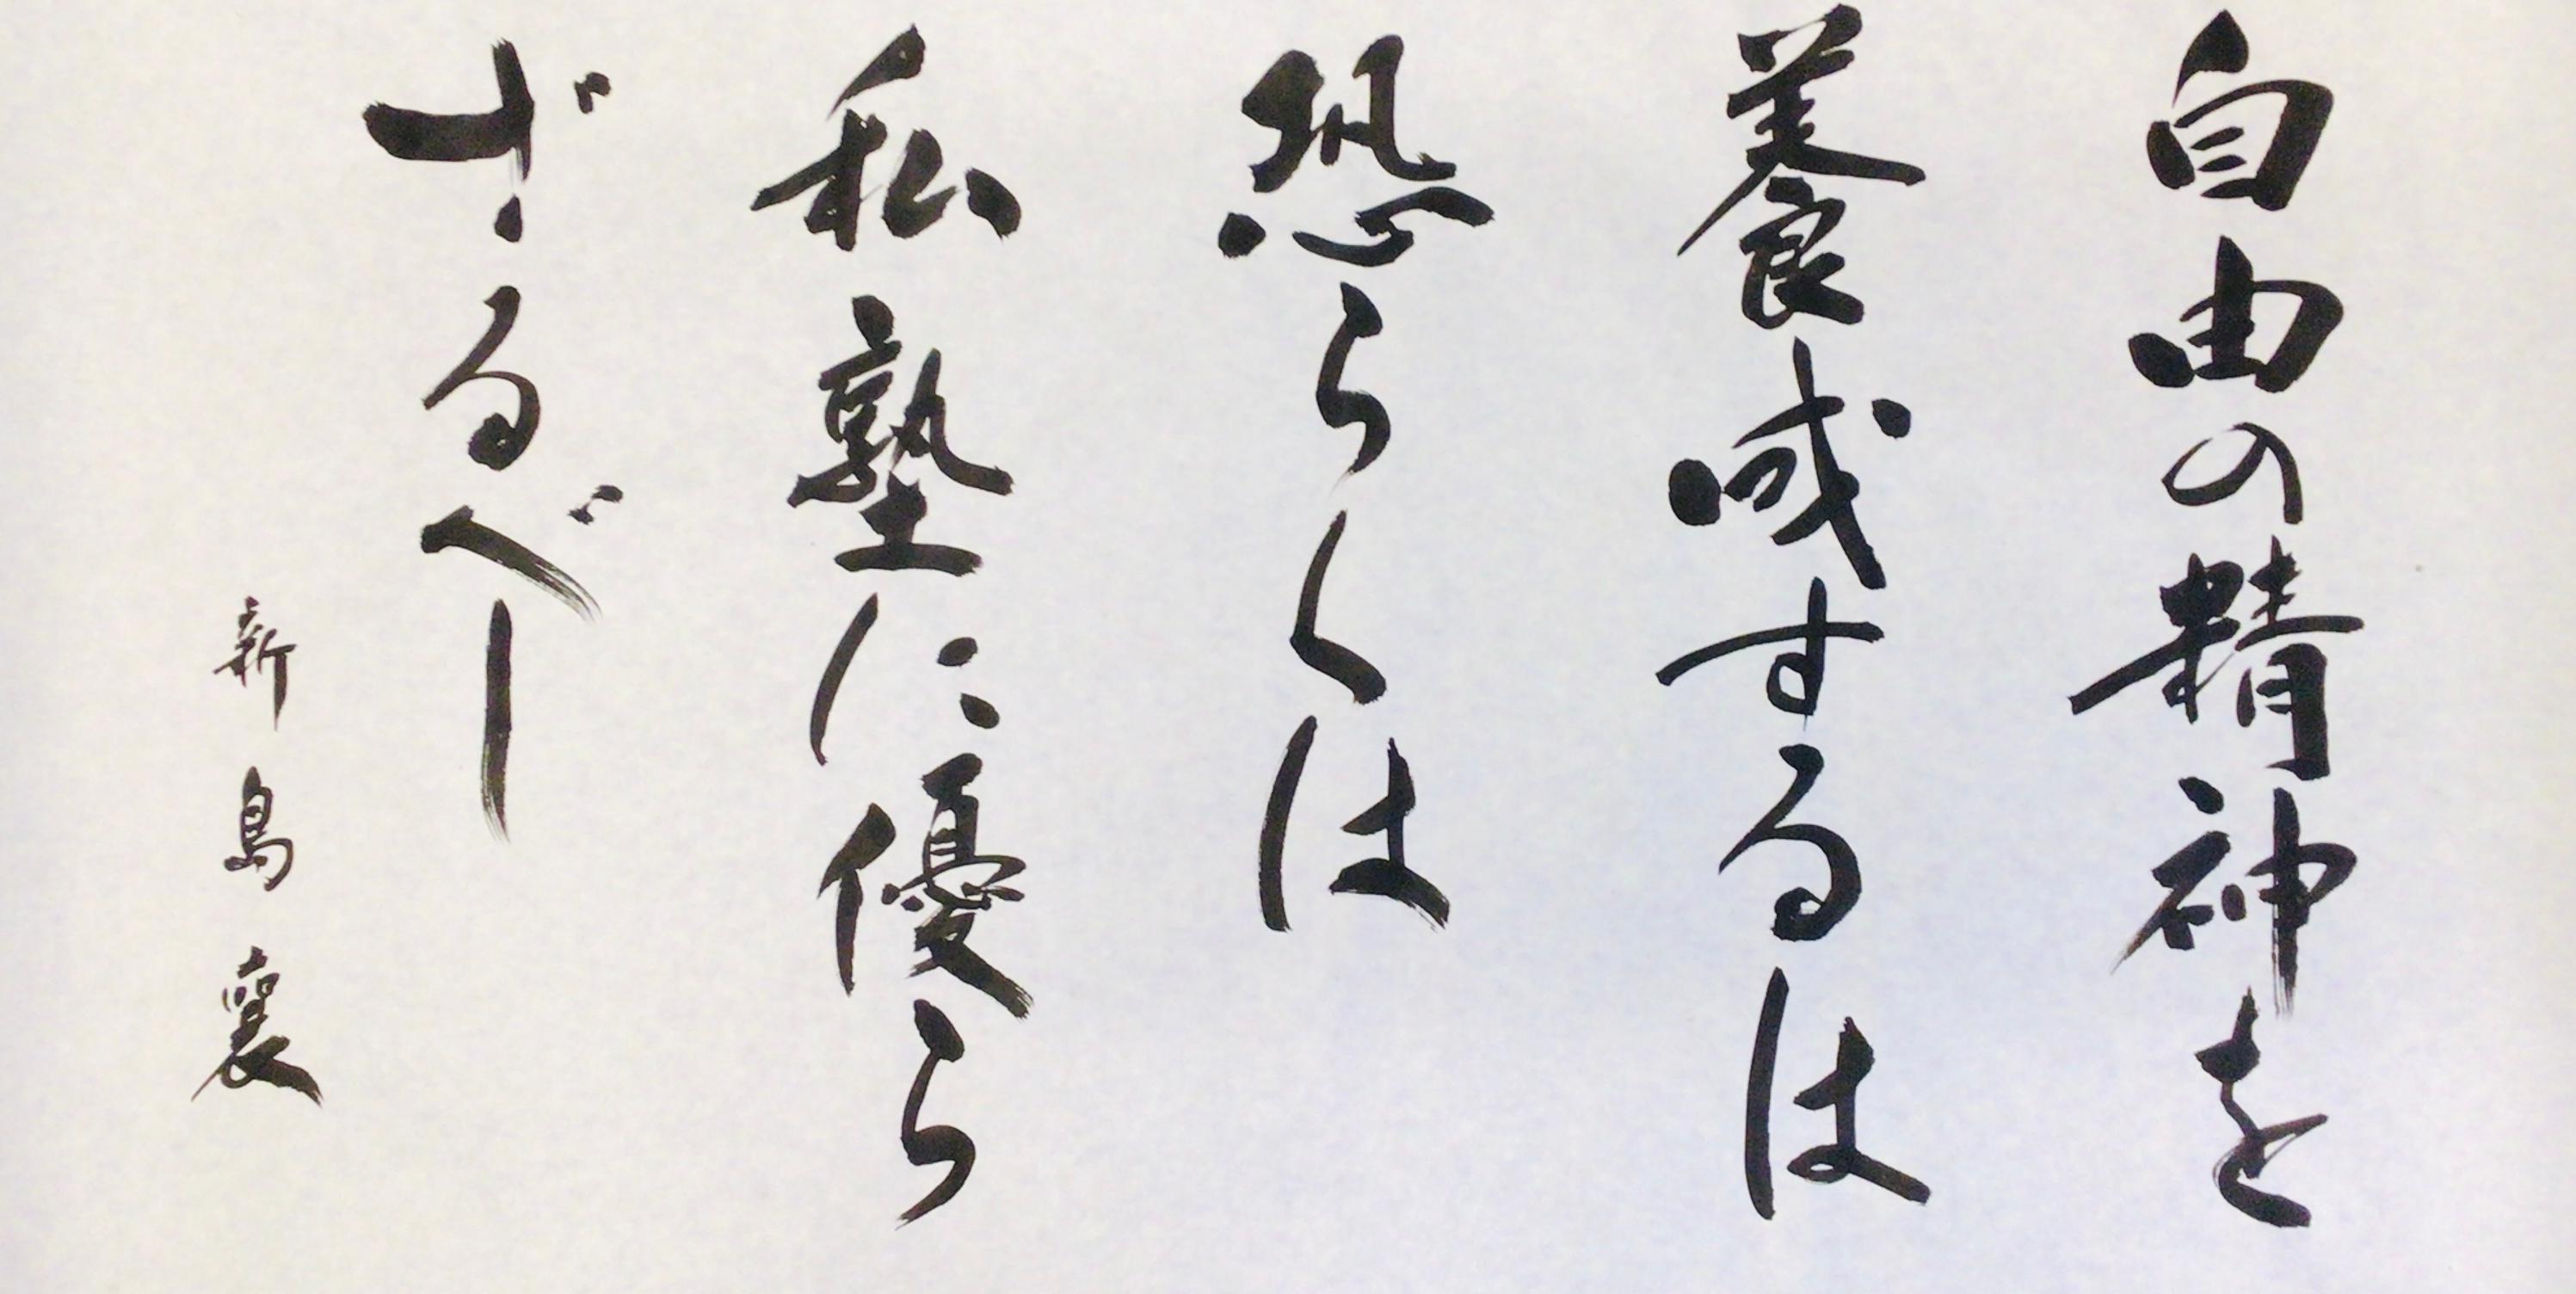 自由の精神を
養成するは
恐らくは
私塾に優ら
ざるべし
新島襄